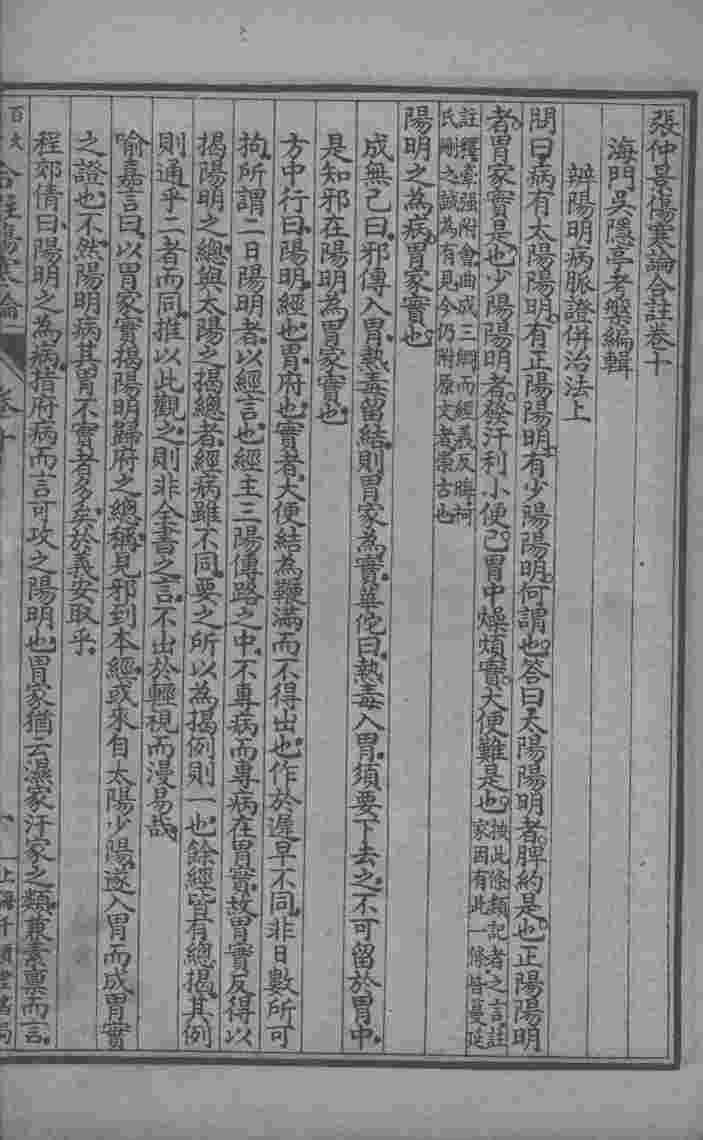 張仲景傷寒論合註卷十
海門吳隱亭考槃編輯
辨陽明病脈證併治法上
問曰。病有太陽陽明。有正陽陽明。有少陽陽明。何謂也。答曰。太陽陽明者。脾約是也。正陽陽明
者。胃家實是也。少陽陽明者。發汗利小便已。胃中燥煩實。大便難是也。按此條類記者之言註
家因有此一條皆蔓延
註釋牽强附會曲成三綱而經義反晦柯
氏刪之誠為有見今仍附原文者崇古也
陽明之為病。胃家實也。
成無己曰。邪傳入胃。熱毒留結。則胃家為實。華佗曰。熱毒入胃。須要下去之。不可留於胃中。
是知邪在陽明為胃家實也。
方中行曰。陽明。經也。胃。府也。實者。大便結為鞕滿而不得出也。作於遲早不同。非日數所可
拘。所謂二日陽明者。以經言也。經主三陽傳路之中。不專病而專病在胃實。故胃實反得以
揭陽明之總。與太陽之揭總者。經病雖不同。要之所以為揭例則一也。餘經皆有總揭。其例
則通乎二者而同。推以此觀之。則非全書之言。不出於輕視而漫易哉。
喻嘉言曰。以胃家實揭陽明歸府之總稱。見邪到本經。或來自太陽少陽。遂入胃而成胃實
之證也。不然。陽明病其胃不實者多矣。於義安取乎。
程郊倩曰。陽明之為病。指府病而言可攻之陽明也。胃家猶云濕家汗家之類。兼素稟而言。
合註傷寒論
卷十
一
上海千頃堂書局